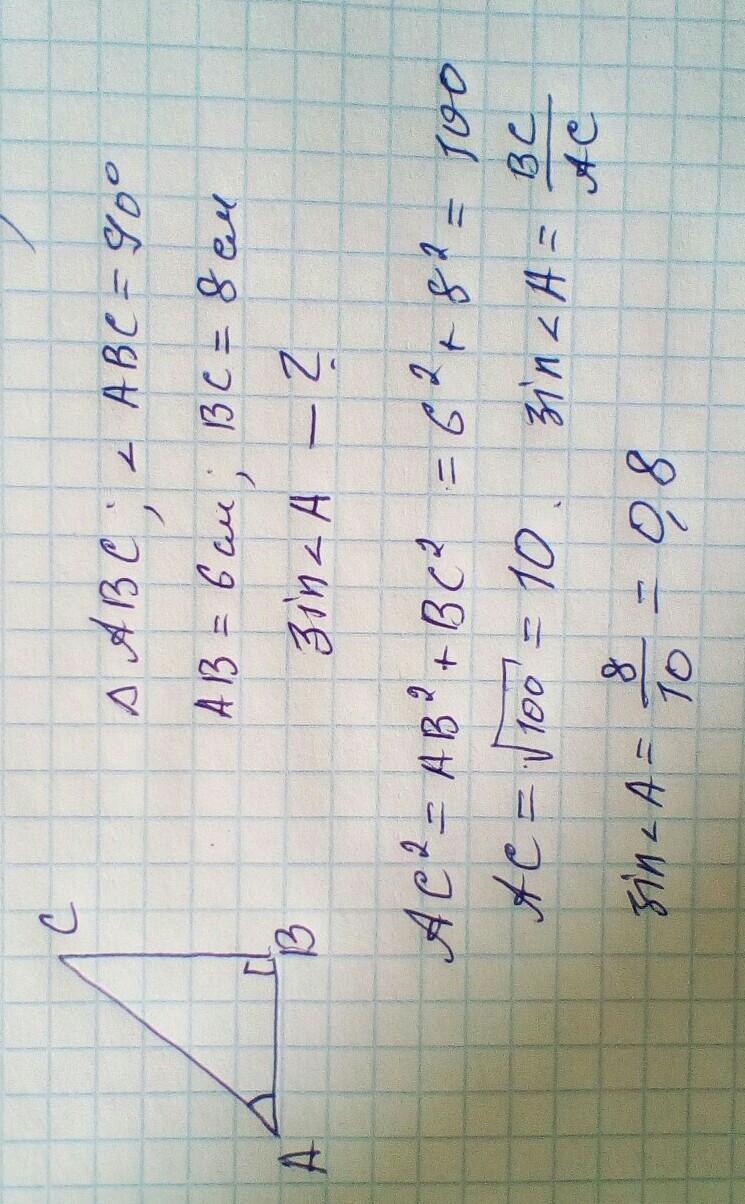 C
A
B
Δ ABC; < ABC = 90°
AB = 6 см; BC = 8 см
sin < A – ?
AC² = AB² + BC² = 6² + 8² = 100
AC = √100 = 10. sin < A = BC/AC
sin < A = 8/10 = 0,8